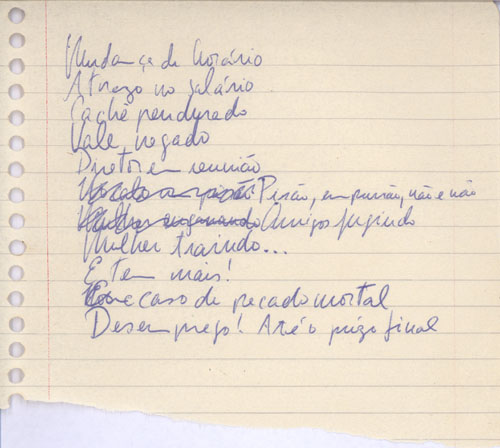 Mudança de horário
Atrazo no salário
Cachê pendurado
Vale negado
Diretor em reunião
Pisão, empurrão, não e não
Amigos fugindo
Mulher traindo...
E tem mais!
caso de pecado mortal
Desemprego! Até o juízo final